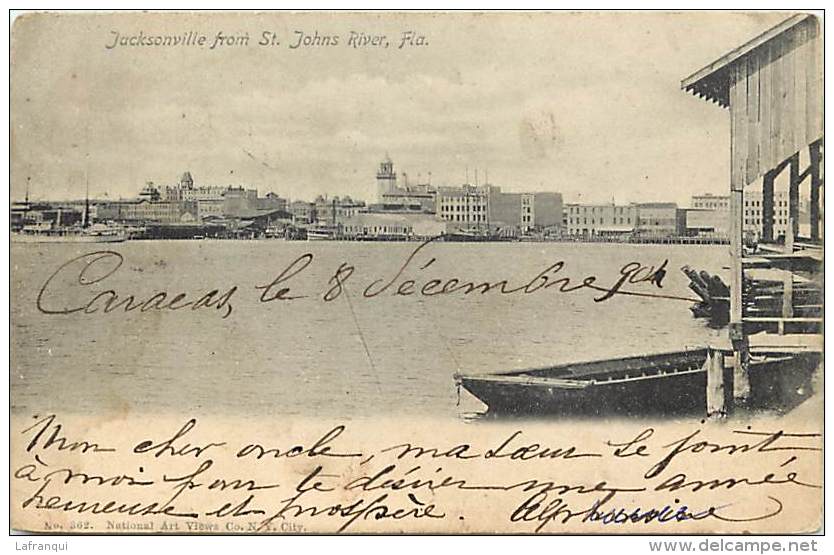 Jacksonville from St. Johns River, Fla.
Caracas, le 8 décembre 904
Mon cher oncle, ma sœur se joint
à moi pour te désirer une année
heureuse et prospère.
No. 362. National Art Views Co. N. Y. City.
Lafranqui
www.delcampe.net